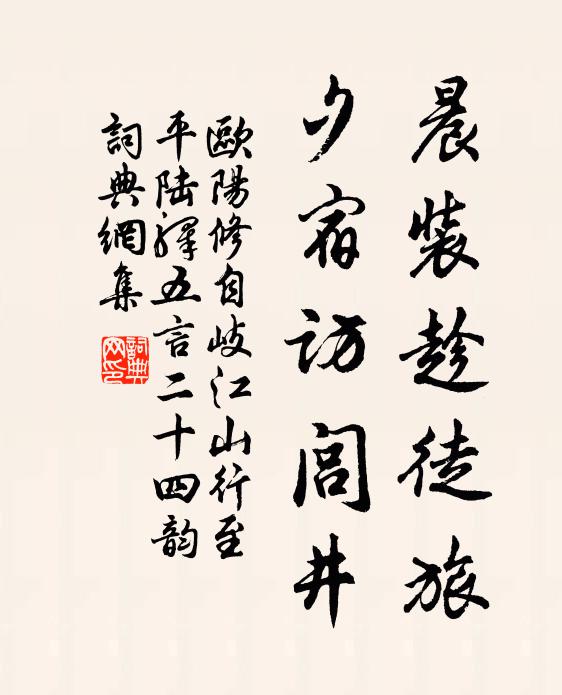 晨裝趁徒旅
夕宿访閭井
歐陽修自岐江山行至
平陆驿五言二十四韵
詞典網集
詞典网印